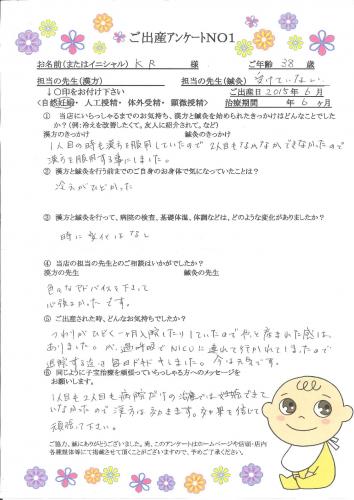 ご出産アンケートNO1
お名前(またはイニシャル) K R 様 ご年齢 38 歳
担当の先生(漢方) 担当の先生(鍼灸) 受けていない
↓○印をお付け下さい ご出産日 2015年 6月
<自然妊娠・人工授精・体外受精・顕微授精> 治療期間 年 6ヶ月
① 当店にいらっしゃるまでのお気持ち、漢方と鍼灸を始められたきっかけはどんなことでしたか?(例:冷えを改善したくて。友人に紹介されて。など)
漢方のきっかけ 鍼灸のきっかけ
1人目の時も漢方を服用していたので2人目もなかなかできなかったので
漢方を服用する事にしました。
② 漢方と鍼灸を行う以前までのご自身のお身体で気になっていたことは?
冷えがひどかった
③ 漢方と鍼灸を行って、病院の検査、基礎体温、体調などは、どのような変化がありましたか?
特に変化はなし
④ 当店の担当の先生とのご相談はいかがでしたか?
漢方の先生 鍼灸の先生
色々なアドバイスを下さって
心強よかったです。
⑤ ご出産された時、どんなお気持ちでしたか?
つわりがひどく一ヶ月入院したりしていたのでやっと産まれた感は
ありました。が、過呼吸でNICUに連れて行かれてしまったので
退院する迄は毎日ドキドキしました。今は元気です。
⑥ 同じように子宝治療を頑張っていらっしゃる方へのメッセージをお願いします。
1人目も2人目も病院だけの治療では妊娠できて
いなかったので漢方は効きます。効果を信じて
頑張って下さい。
ご協力、誠にありがとうございました。尚、このアンケートはホームページや店頭・店内
各種媒体等にて掲示させて頂くことがございますので、予めご了承ください。